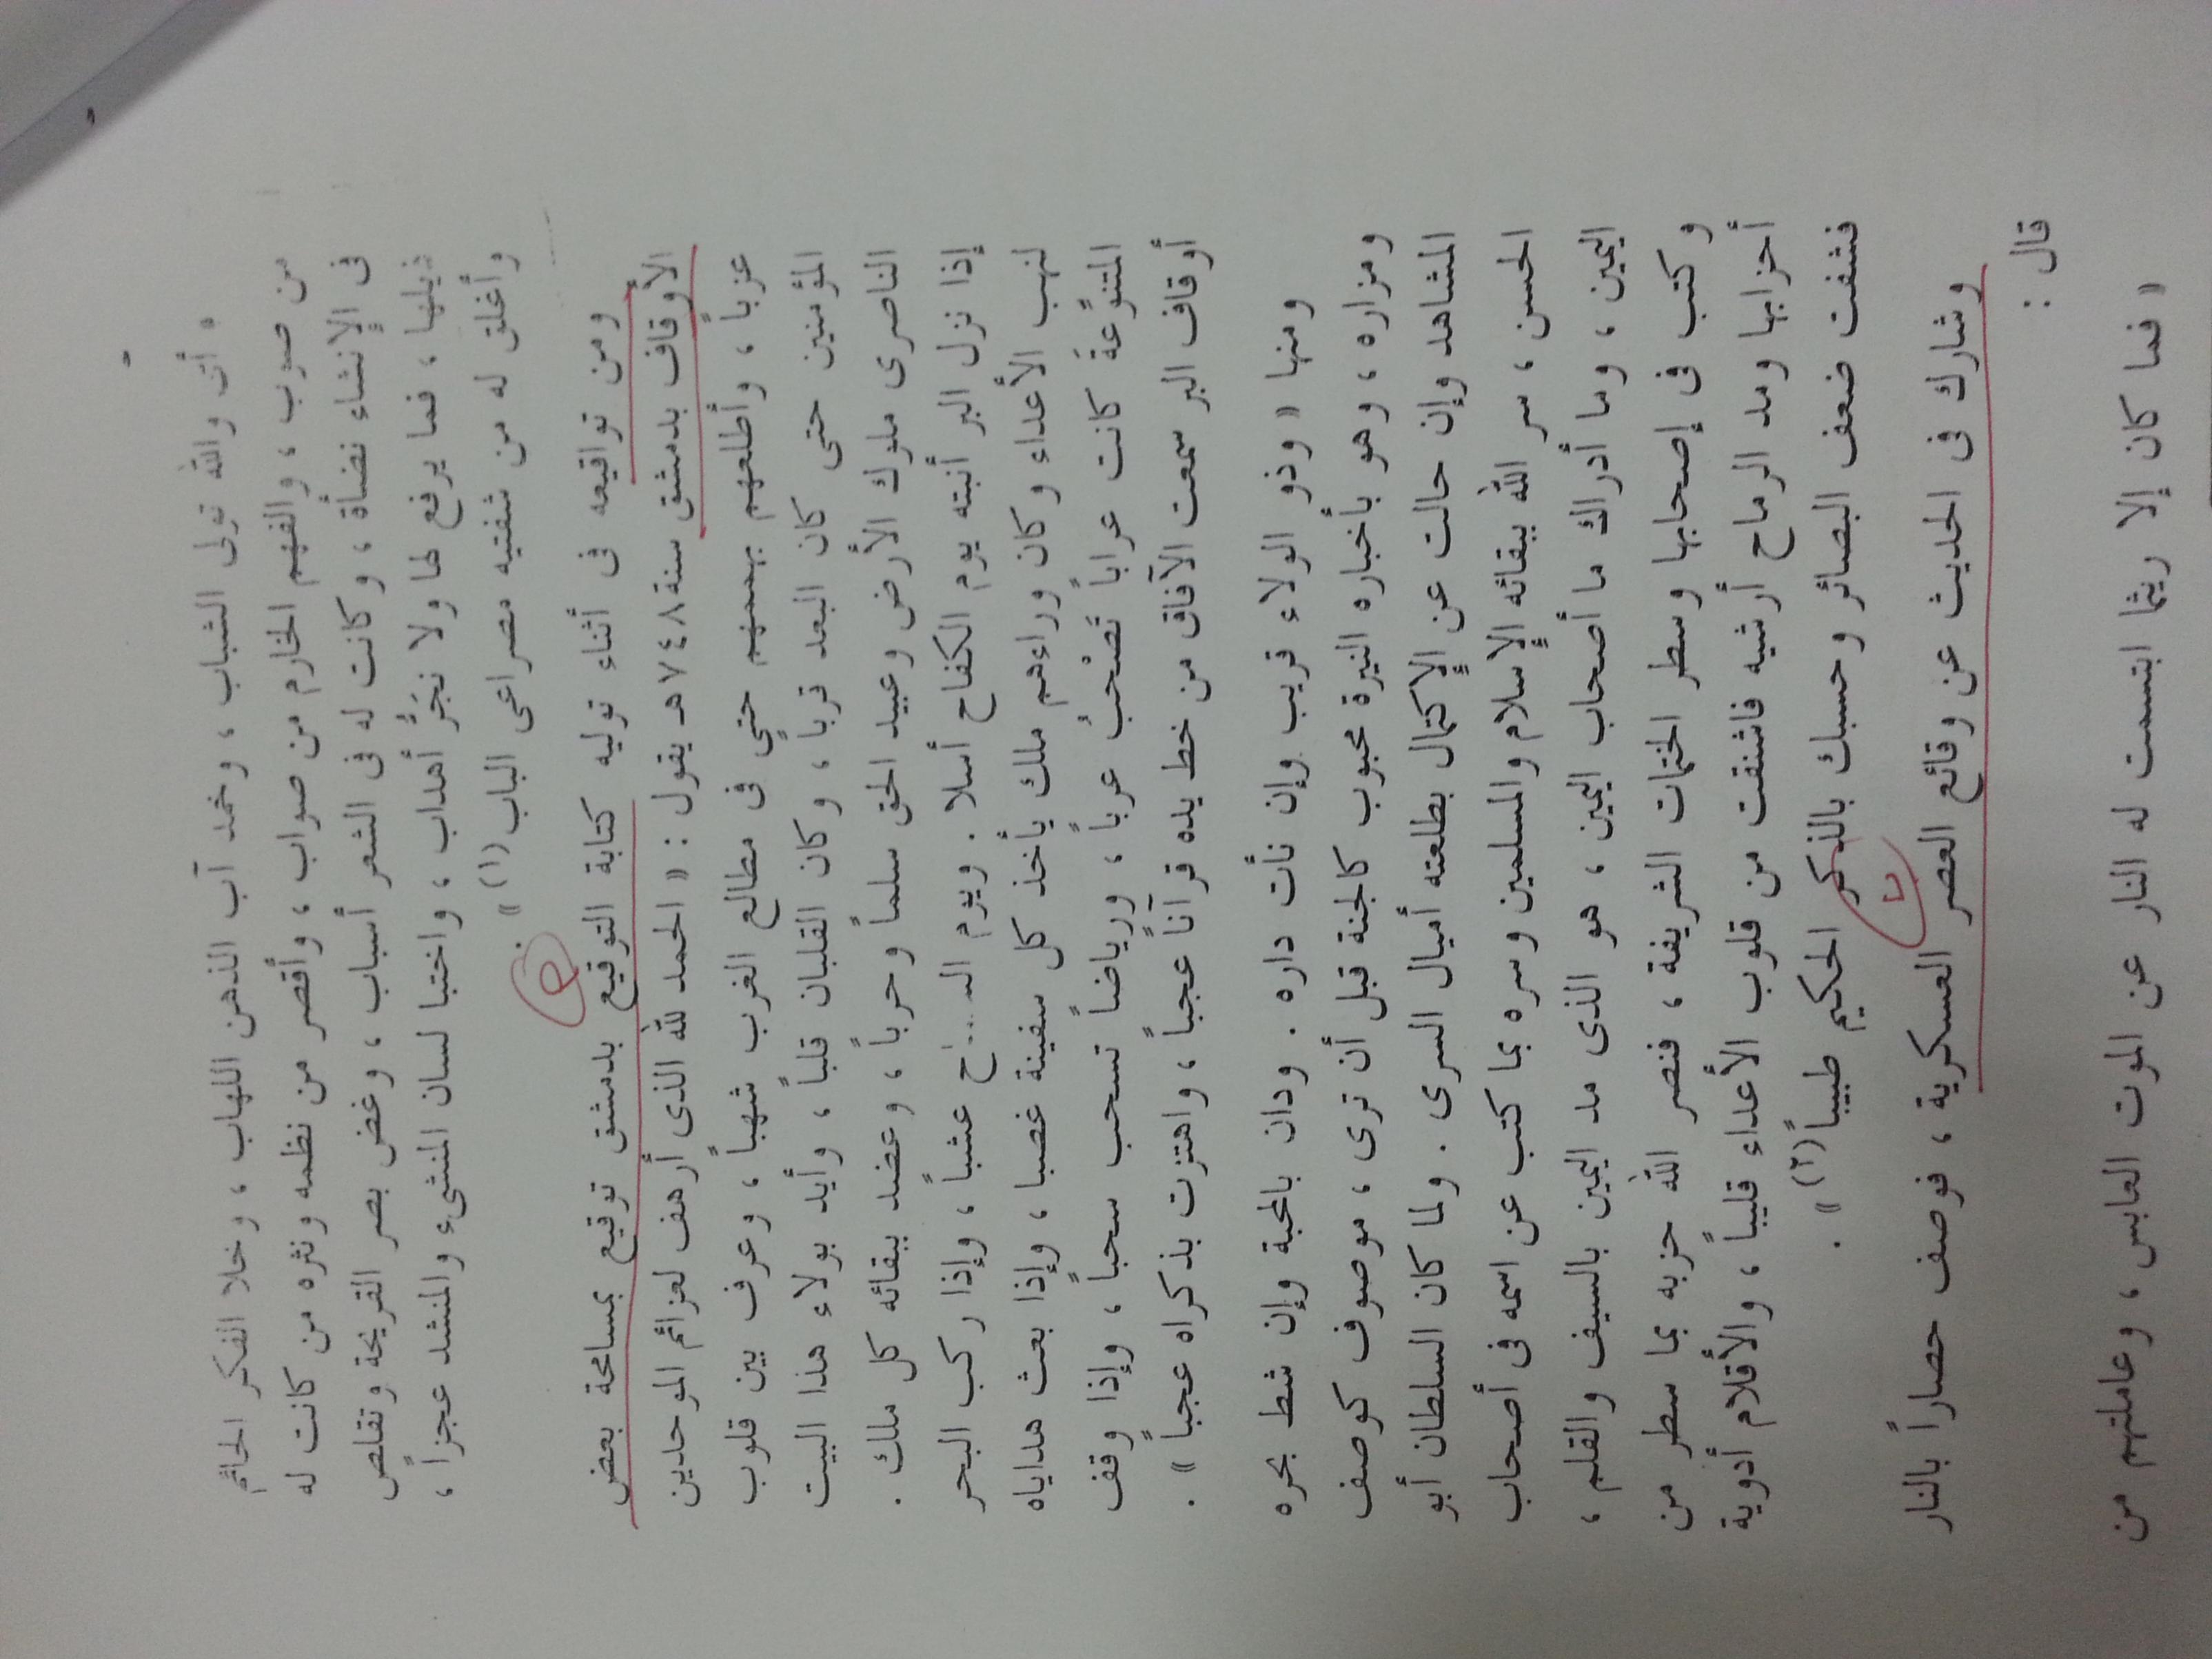 « أنى والله تولى الشباب ، وخمد آب الذهن اللهاب ، وخلا الفكر الحائم
من صوب ، والفهم الخارم من صواب ، وأقصر من نظمه ونثره من كانت له
فى الإنشاء نضأة ، وكانت له فى الشعر أسباب ، وغض بصر القريحة وتقلص
ذيلها ، فما يرفع لها ولا نَجَرُّ أهداب ، واختبا لسان المنشىء والمنشد عجزاً ،
وأغلق له من شفتيه مصراعى الباب (١) » .
ومن تواقيعه فى أثناء توليه كتابة التوقيع بدمشق توقيع بمسامحة بعض
الأوقاف بدمشق سنة ٧٤٨هـ يقول : « الحمد لله الذى أرهف لعزائم الموحدين
عزباً ، وأطلعهم بهممهم حتى فى مطالع الغرب شهباً ، وعرف بين قلوب
المؤمنين حتى كان البعد قربا ، وكان القلبان قلباً ، وأيد بولاء هذا البيت
الناصرى ملوك الأرض وعبيد الحق سلماً وحرباً ، وعضد ببقائه كل ملك .
إذا نزل البر أنبته يوم الكفاح أسلا . ويوم الـ عشباً ، وإذا ركب البحر
لنهب الأعداء وكان وراءهم ملك يأخذ كل سفينة غصبا ، وإذا بعث هداياه
المتنوِّعةَ كانت عراباً تَصْحَبُ عرباً ، ورياضاً تسحب سحباً ، وإذا وقف
أوقاف البر سمعت الآفاق من خط يده قرآناً عجباً ، واهتزت بذكراه عجباً » .
ومنها « وذو الولاء قريب وإن نأت داره . ودان بالمحبة وإن شط بحره
ومزاره ، وهو بأخباره النيرة محبوب كالجنة قبل أن ترى ، موصوف كوصف
المشاهد وإن حالت عن الإكتمال بطلعته أميال السرى . ولما كان السلطان أبو
الحسن ، سر الله ببقائه الإسلام والمسلمين وسره بما كتب عن اسمه فى أصحاب
اليمين ، وما أدراك ما أصحاب اليمين ، هو الذى مد اليمين بالسيف والقلم ،
وكتب فى إصحابها وسطر الختمات الشريفة ، فنصر الله حزبه بما سطر من
أحزابها ومد الرماح أرشيه فاشتفت من قلوب الأعداء قليباً ، والأقلام أدوية
فشفت ضعف البصائر وحسبك بالذكر الحكيم طبيباً (٢) » .
وشارك فى الحديث عن وقائع العصر العسكرية ، فوصف حصاراً بالنار
قال :
« فما كان إلا ريثما ابتسمت له النار عن الموت العابس ، وعاملتهم من